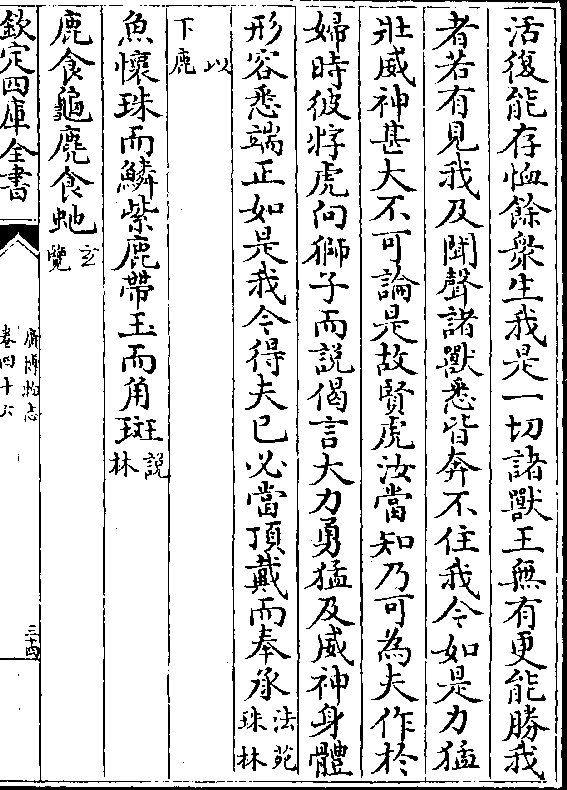 活復能存恤餘衆生我是一切諸獸王無有更能勝我
者若有見我及聞聲諸獸悉皆奔不住我今如是力猛
壯威神甚大不可論是故賢虎汝當知乃可為夫作於
婦時彼牸虎向獅子而說偈言大力勇猛及威神身體
形容悉端正如是我今得夫已必當頂戴而奉承法苑珠林
以下鹿
魚懷珠而鱗紫鹿帶玉而角斑說林
鹿食龜麂食虵玄覽
欽定四庫全書
廣博物志
卷四十六
三十四